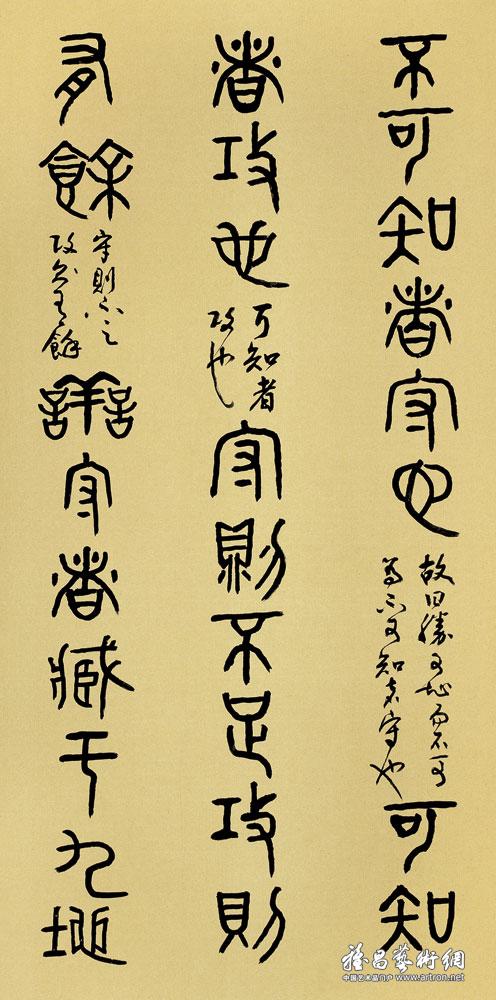 不可知者守也
故曰勝可知而不可
為不可知者守也
可知
者攻也
可知者
攻也
守則不足攻則
有餘
守則不足
攻則有餘
譱守者臧于九地
雅昌藝術網
中国艺术品门户 www.artron.net